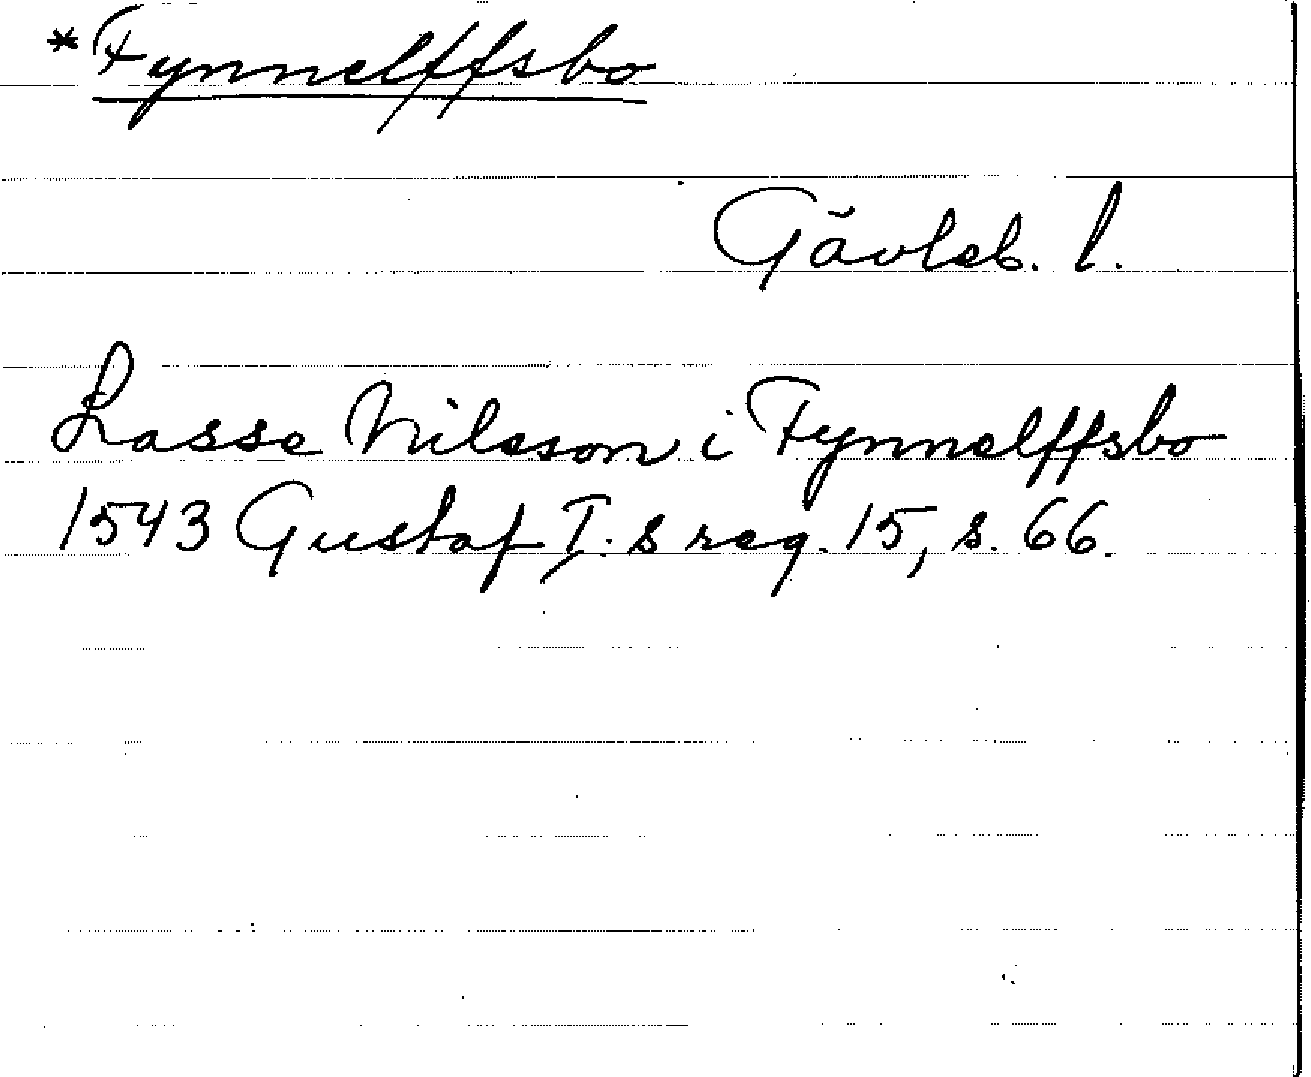 *Fynnelffsbo
Gävleb. l.
Lasse Nilsson i Fynnelffsbo
1543 Gustaf I:s reg. 15, s. 66.